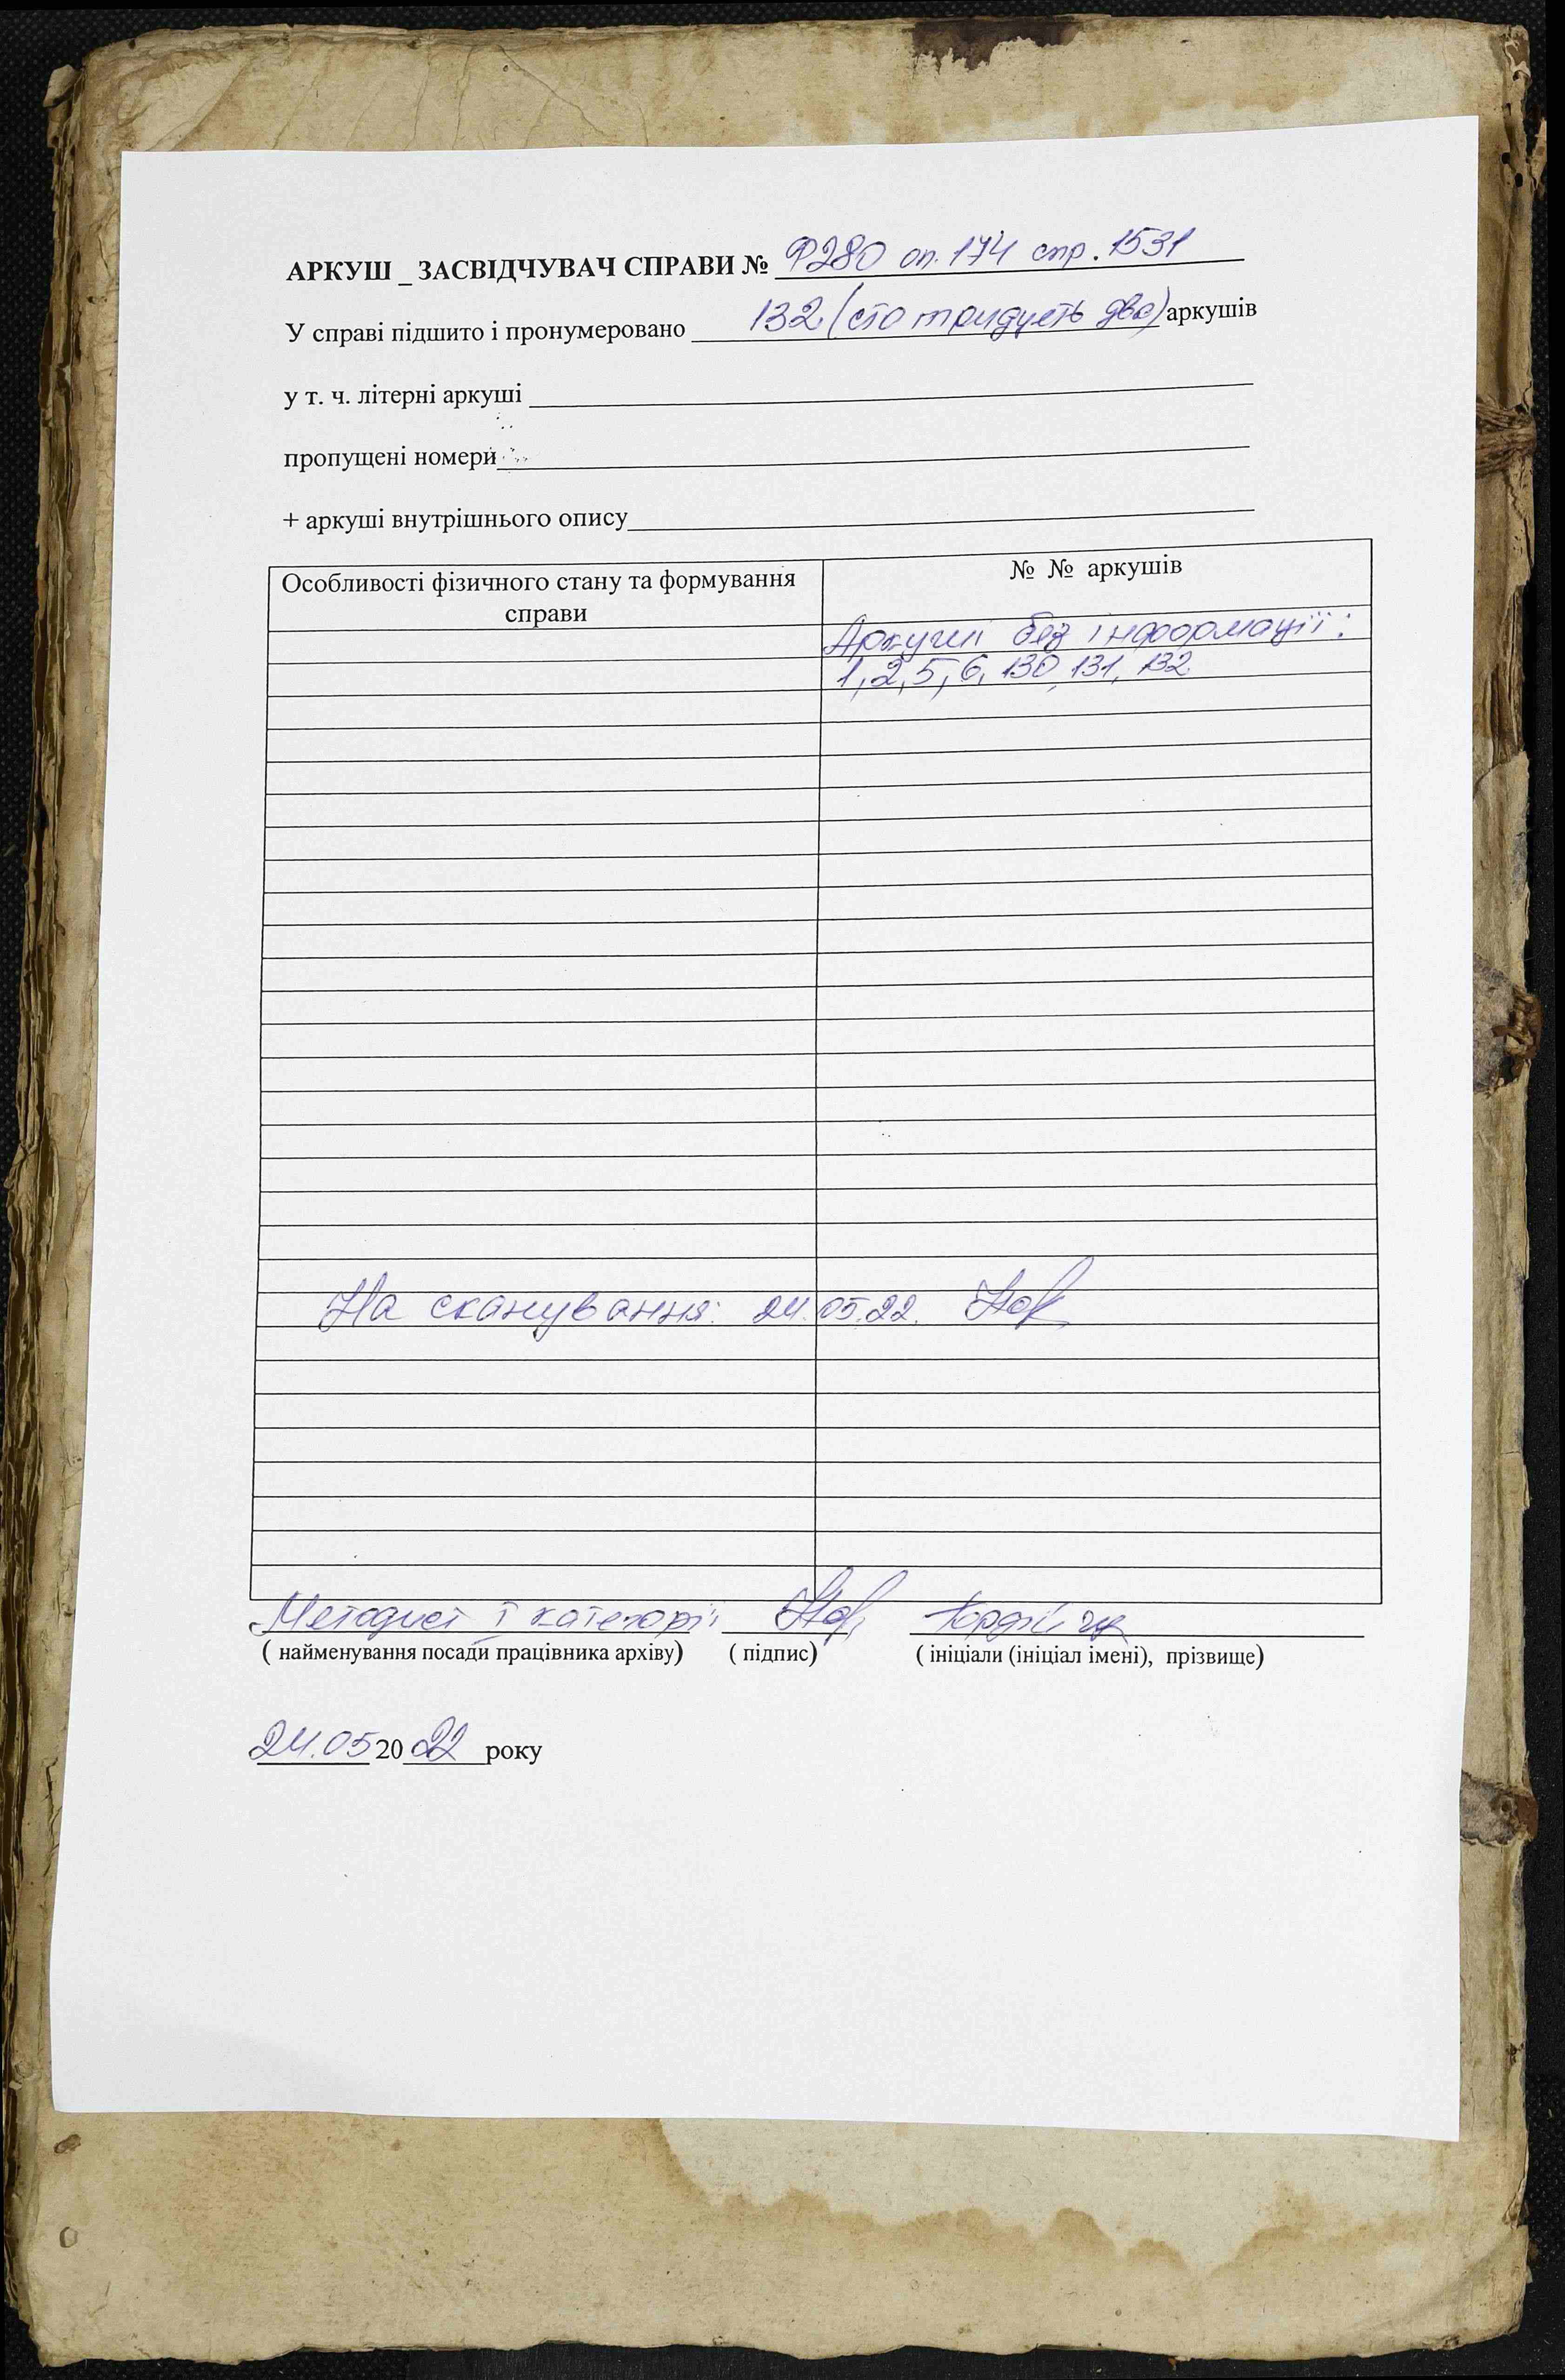 АРКУШ _ ЗАСВІДЧУВАЧ СПРАВИ № Ф280 оп. 174 спр. 1531
У справі підшито і пронумеровано 132 (сто тридцять два) аркушів
у т. ч. літерні аркуші
пропущені номери
+ аркуші внутрішнього опису
Особливості фізичного стану та формування № № аркушів
справи
Аркуші без інформації:
1, 2, 5, 6, 130, 131, 132
На сканування: 24.05.22.
Методист I категорії
( найменування посади працівника архіву) ( підпис) ( ініціали (ініціал імені), прізвище)
24.05 2022 року